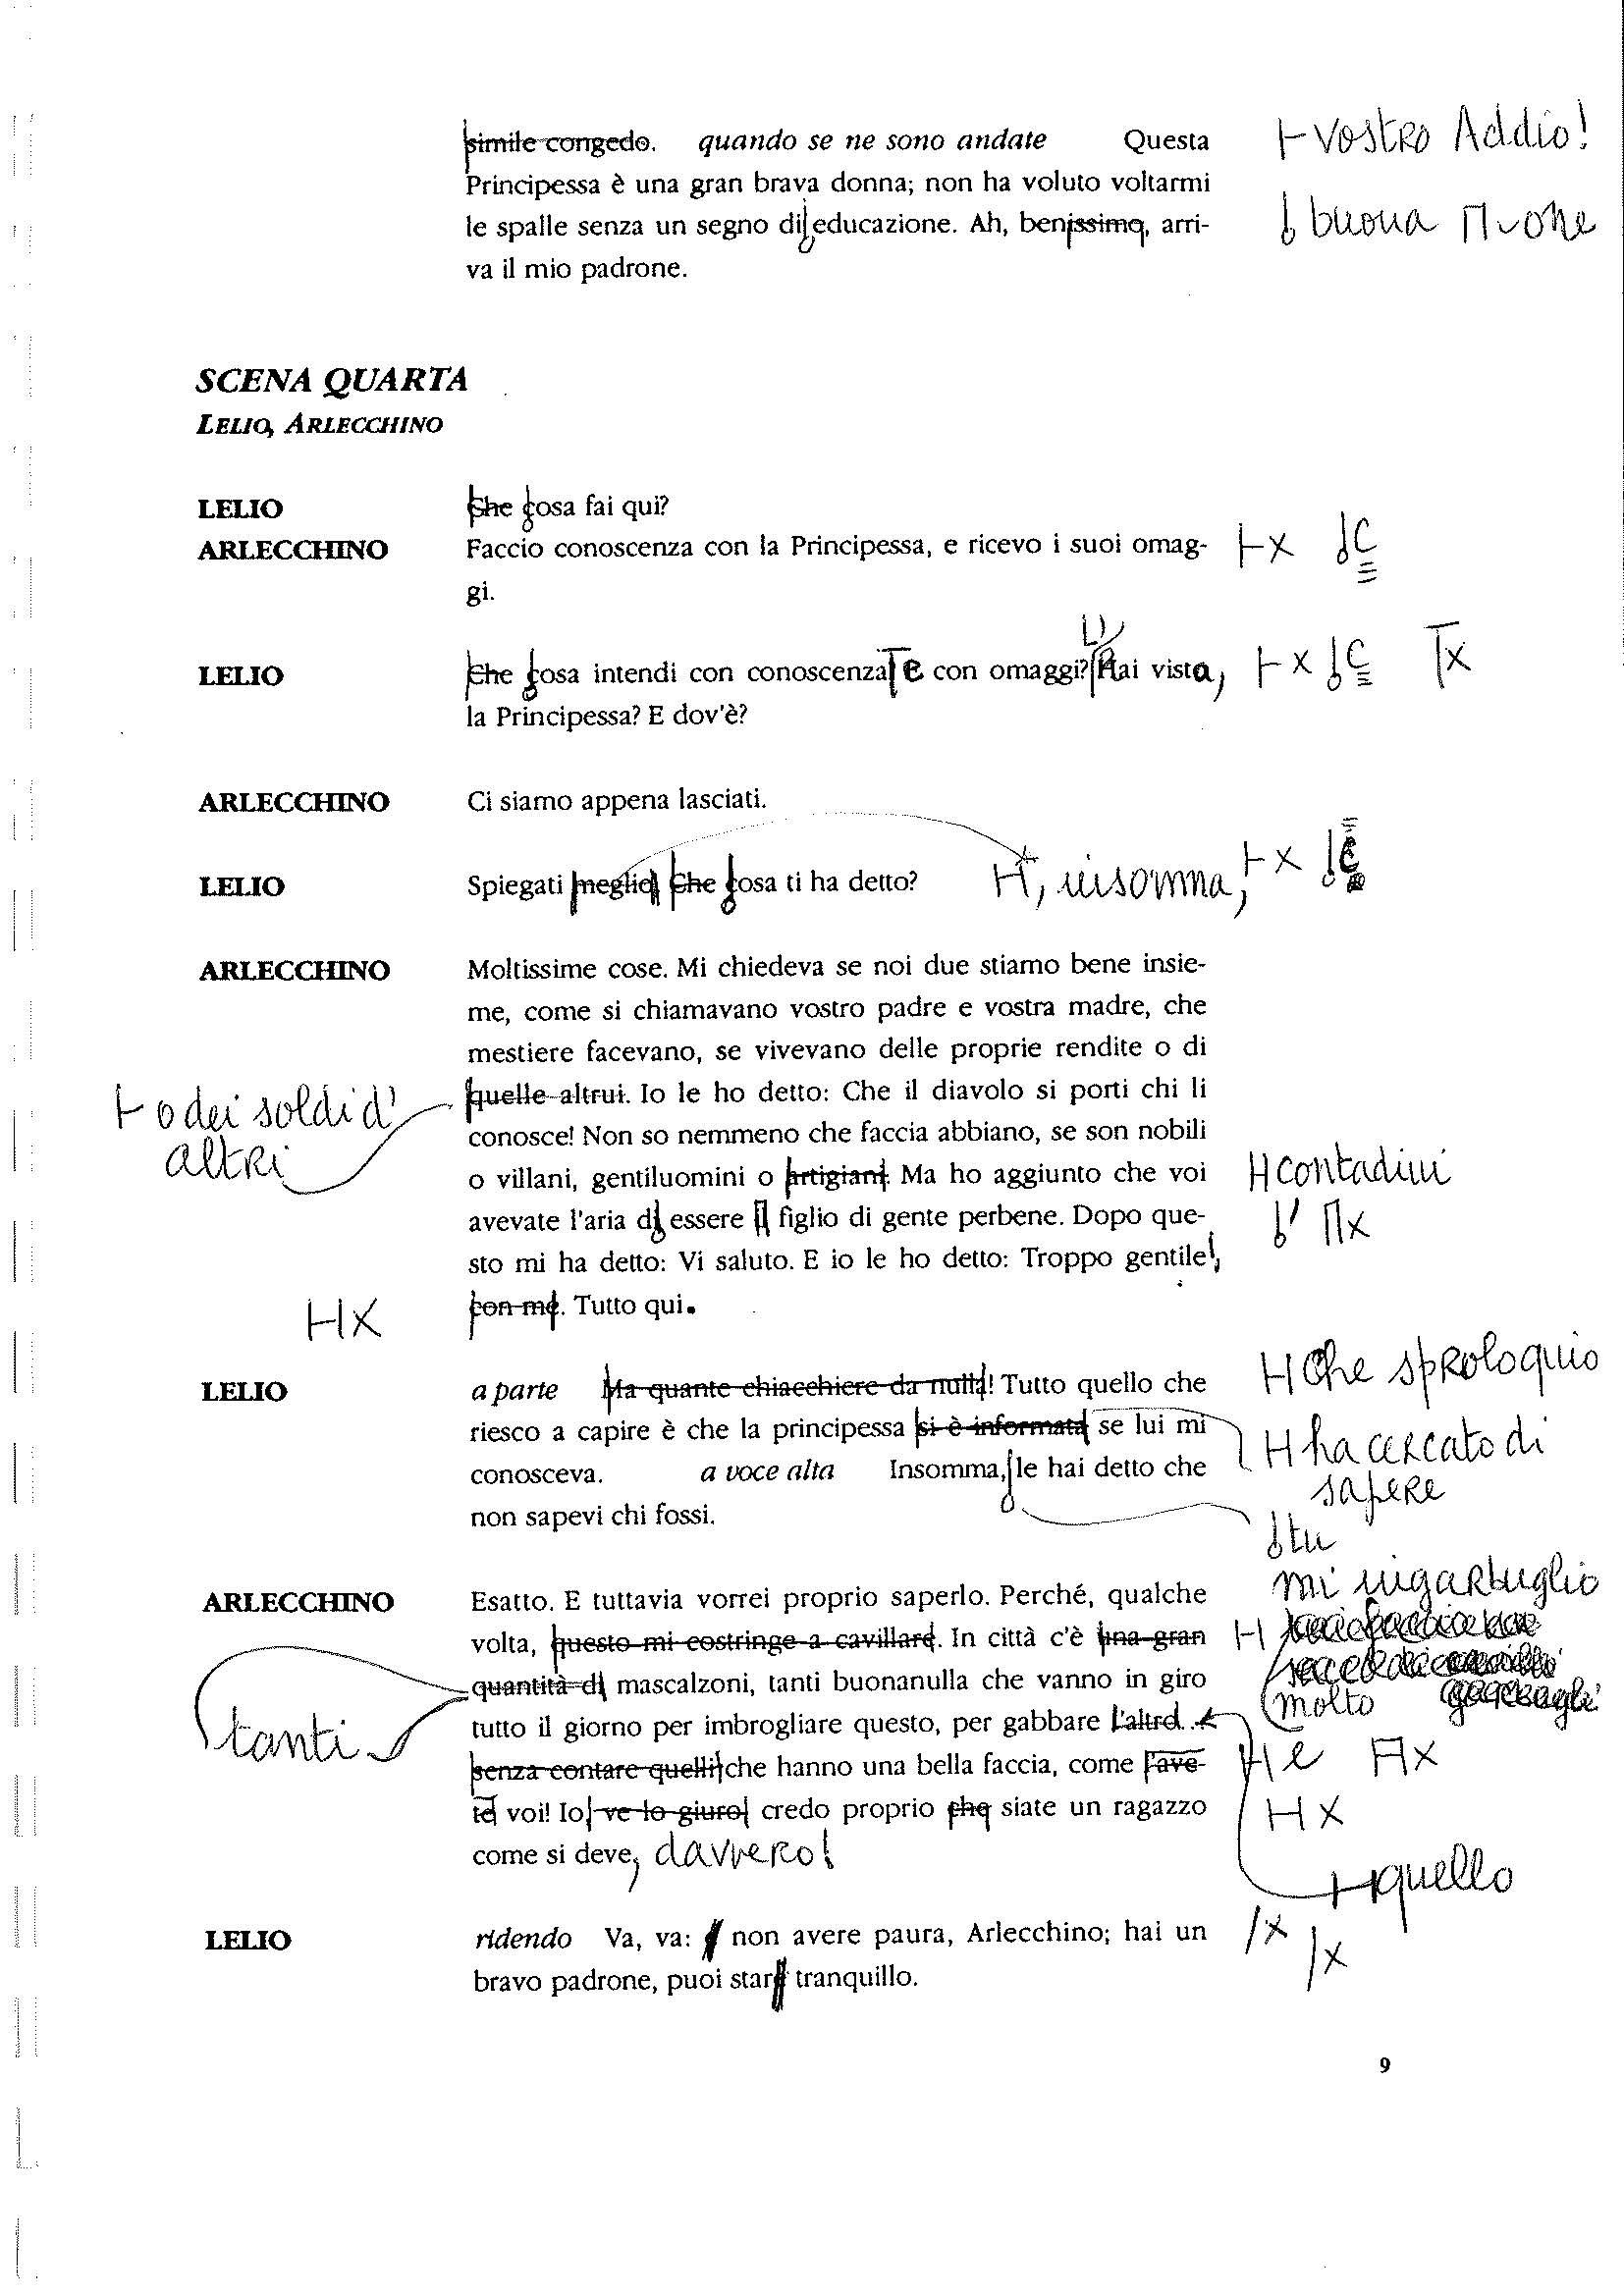 simile congedo. quando se ne sono andate Questa
vostro Addio!
Principessa è una gran brava donna; non ha voluto voltarmi
le spalle senza un segno di educazione. Ah, benissimo, arri-
buona
va il mio padrone.
SCENA QUARTA
LELIO, ARLECCHINO
LELIO Che cosa fai qui?
ARLECCHINO Faccio conoscenza con la Principessa, e ricevo i suoi omag- x C
gi.
LELIO Che cosa intendi con conoscenza e con omaggi? Hai vista, x C x
la Principessa? E dov'è?
ARLECCHINO Ci siamo appena lasciati.
LELIO Spiegati meglio Che cosa ti ha detto? , insomma, x C
ARLECCHINO Moltissime cose. Mi chiedeva se noi due stiamo bene insie-
me, come si chiamavano vostro padre e vostra madre, che
mestiere facevano, se vivevano delle proprie rendite o di
o dei soldi d'
altri
quelle altrui. Io le ho detto: Che il diavolo si porti chi li
conosce! Non so nemmeno che faccia abbiano, se son nobili
o villani, gentiluomini o artigiani. Ma ho aggiunto che voi
contadini
avevate l'aria di essere il figlio di gente perbene. Dopo que-
' x
sto mi ha detto: Vi saluto. E io le ho detto: Troppo gentile!,
x
con me. Tutto qui.
LELIO a parte Ma quante chiacchiere da nulla! Tutto quello che
Che sproloquio
riesco a capire è che la principessa si è informata se lui mi
ha cercato di
sapere
conosceva. a voce alta Insomma, le hai detto che
tu
non sapevi chi fossi.
ARLECCHINO Esatto. E tuttavia vorrei proprio saperlo. Perché, qualche
mi ingarbuglio
volta, questo mi costringe a cavillare. In città c'è una gran
quantità di mascalzoni, tanti buonanulla che vanno in giro
molto
tanti
tutto il giorno per imbrogliare questo, per gabbare l'altro.
senza contare quelli che hanno una bella faccia, come l'ave-
e x
te voi! Io, ve lo giuro, credo proprio che siate un ragazzo
x
come si deve, davvero!
quello
LELIO ridendo Va, va: non avere paura, Arlecchino; hai un x
bravo padrone, puoi stare tranquillo. x
9